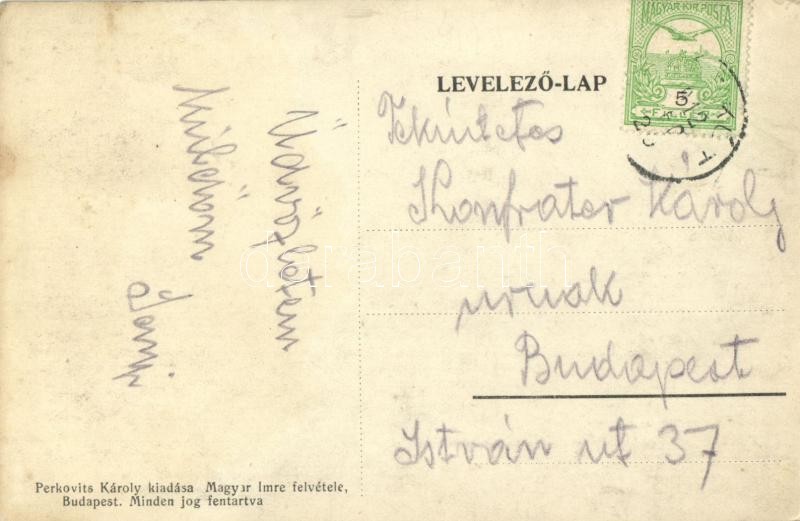 MAGYAR·KIR·POSTA
5
LEVELEZŐ-LAP
Tekintetes
Konfráter Károly
urnak
Budapest
István ut 37
Üdvözletem
Jenő
Perkovits Károly kiadása Magyar Imre felvétele,
Budapest. Minden jog fentartva
darabanth